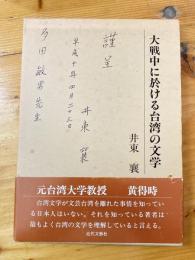 大戦中に於ける台湾の文学
井東 襄
謹呈
平成十年四月二十三日
井東 襄
多田敏男先生
元台湾大学教授 黄得時
台湾文学が文芸台湾を離れた事情を知っている
日本人はいない。それを知っている著者は
最もよく台湾の文学を理解していると言える。
近代文藝社